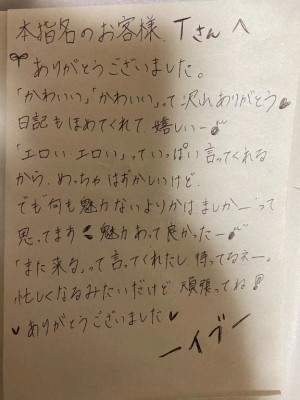 本指名のお客様、Tさんへ
ありがとうございました。
「かわいい」「かわいい」って沢山ありがとう
日記もほめてくれて嬉しいー
「エロい・エロい」っていっぱい言ってくれる
から、めっちゃはずかしいけど、
でも何も魅力ないよりかはましかー って
思ってます 魅力あって良かったー
「また来る」って言ってくれたし 待ってるえー。
忙しくなるみたいだけど 頑張ってね!
ありがとうございました
ーイブー